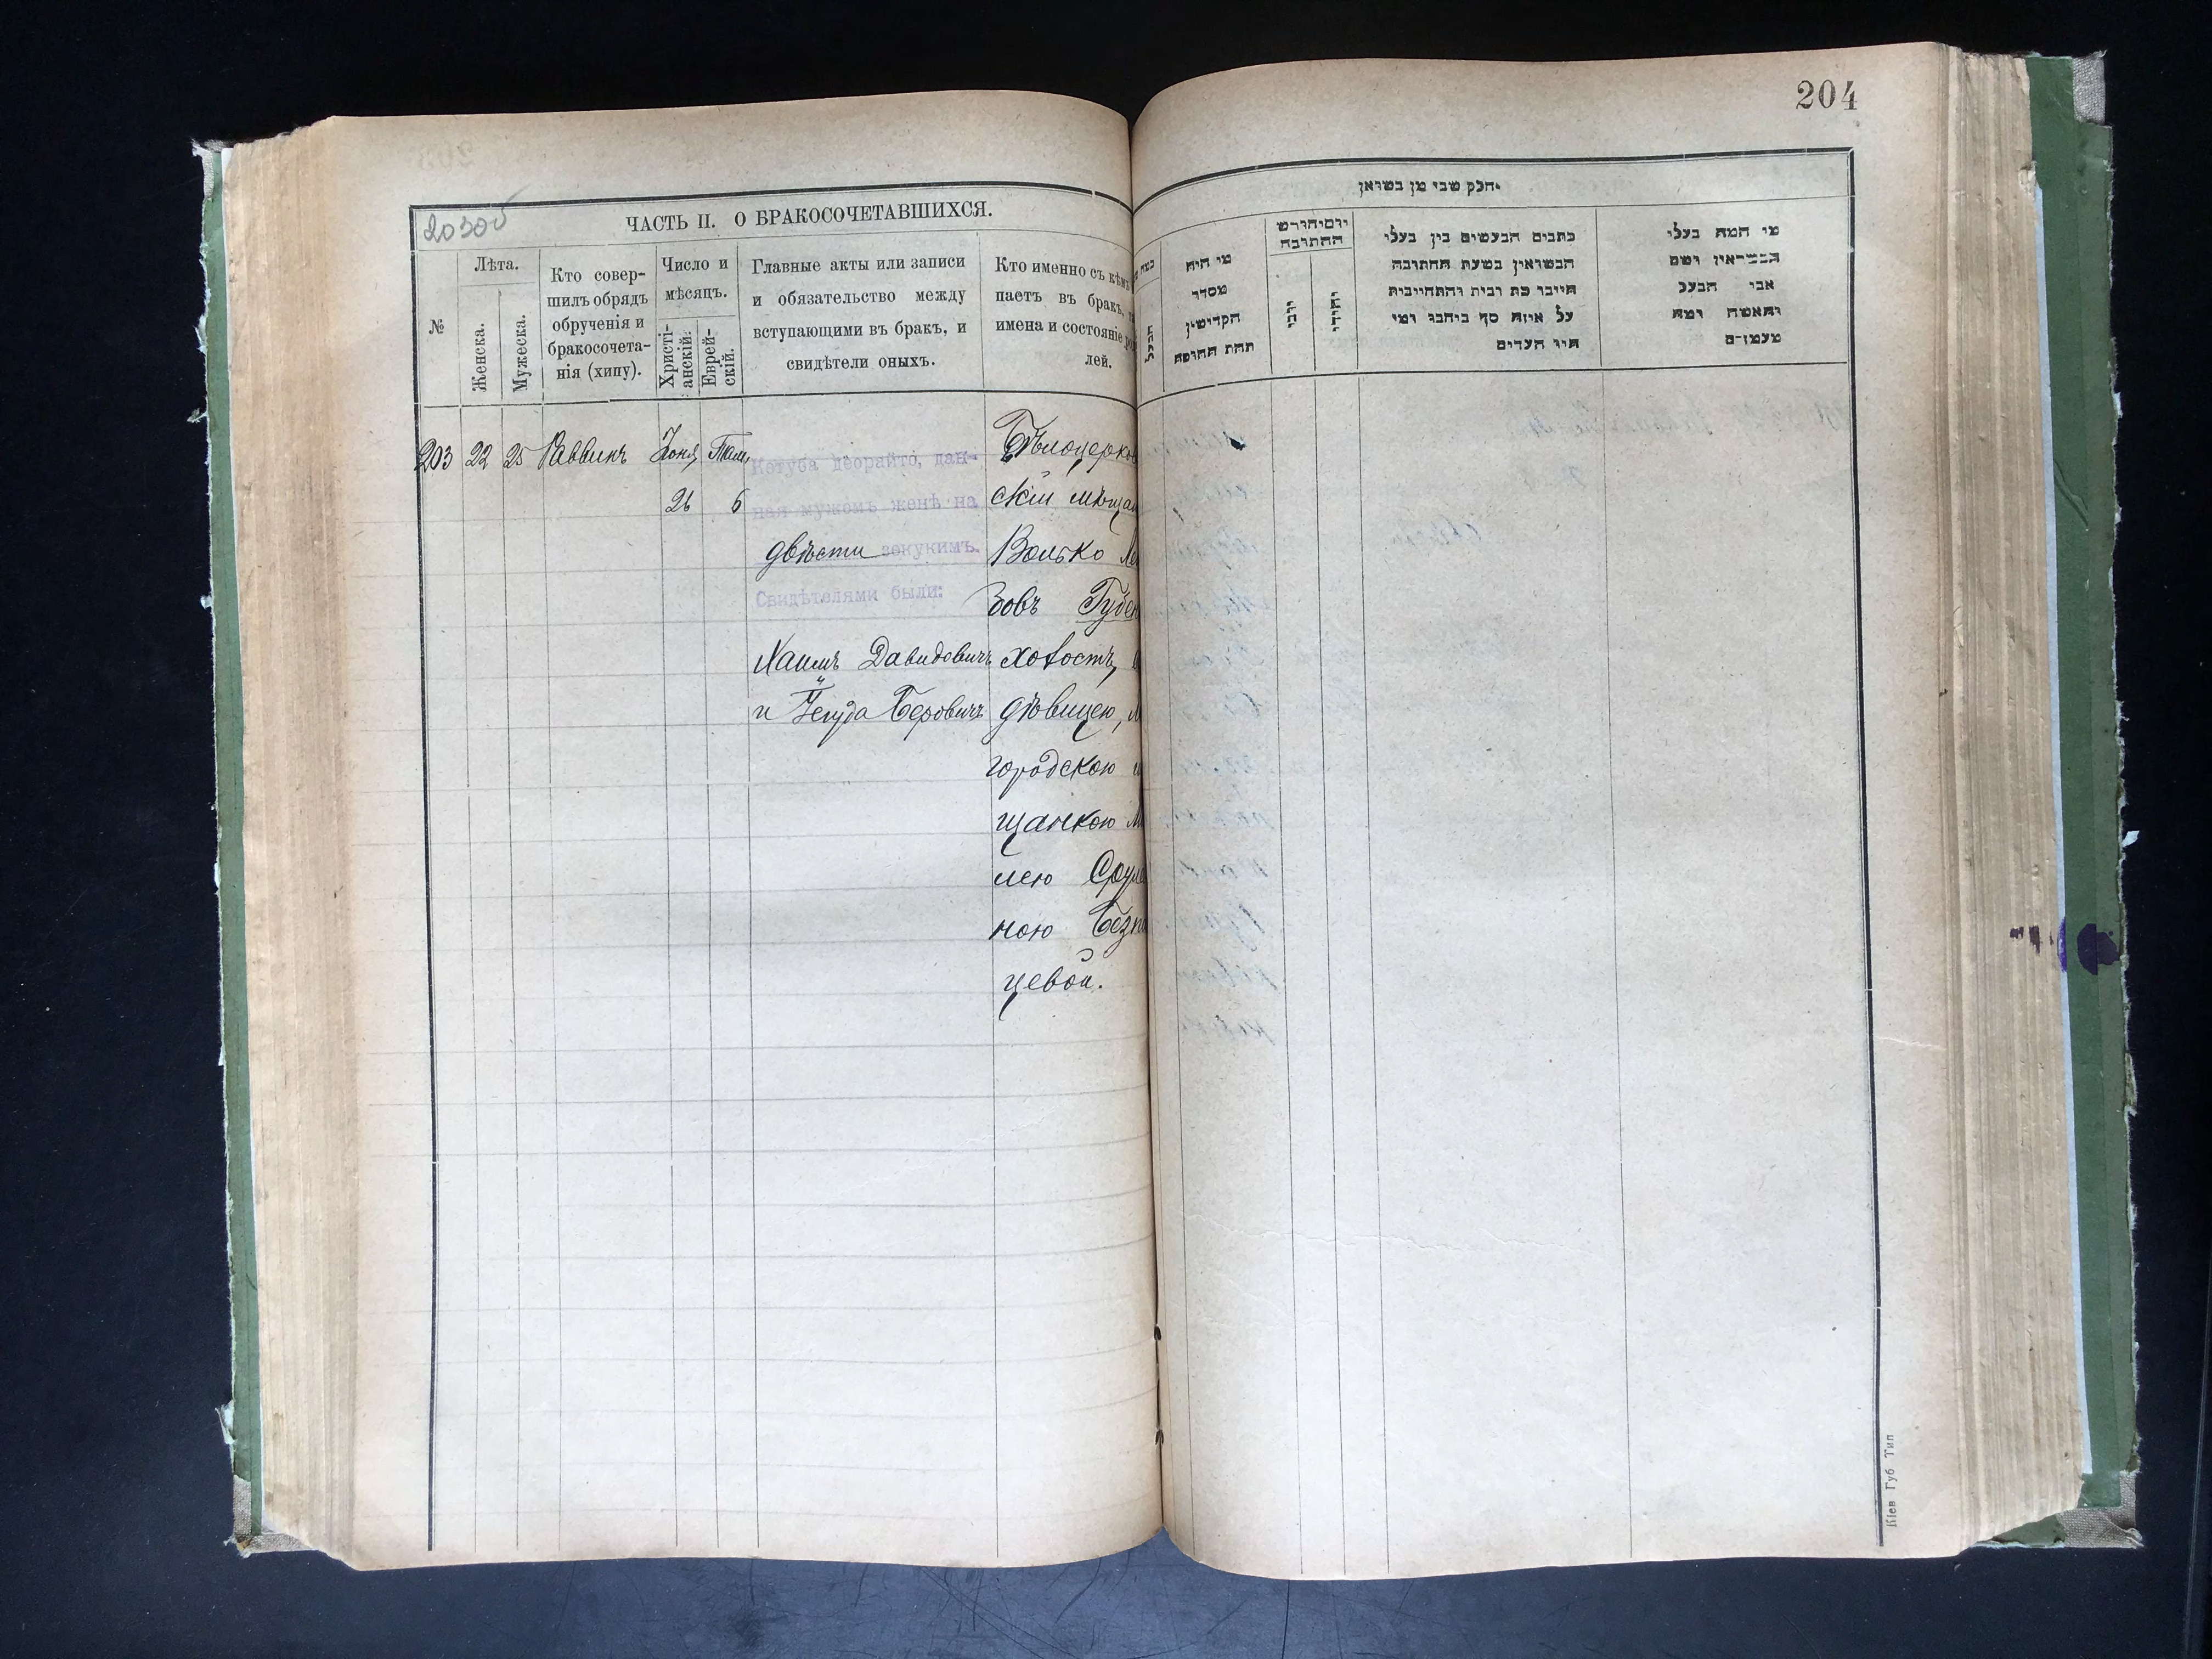 204
203об
ЧАСТЬ II. О БРАКОСОЧЕТАВШИХСЯ.
№
Лѣта.
Женска.
Мужеска.
Кто совер-
шилъ обрядъ
обрученія и
бракосочета-
нія (хипу).
Число и
мѣсяцъ.
Христі-
анскій.
Еврей-
скій.
Главные акты или записи
и обязательство между
вступающими въ бракъ, и
свидѣтели оныхъ.
Кто именно съ кѣмъ
паетъ въ бракъ,
имена и состояніе ро
лей.
203 22 25 Раввинъ Іюня Там.
26 6
Кетуба деорайто, дан-
ная мужемъ женѣ на
двѣсти зекукимъ.
Свидѣтелями были:
Хаимъ Давидовичъ
и Іегуда Беровичъ
Бѣлоцерков
скій мѣщан
Волько Ле
зовъ Губен
холостъ,
дѣвицею,
городскою
щанкою М
лею Срул
ною Безп
цевой.
חלק שני מן נשואין
מי היה
מסדר
הקדישין
תחת החופה
יום וחודש
החתונה
כתבים הנעשים בין בעלי
הנשואין בשעת החתונה
חייבו בת רבית והתחייבית
על איזה סך ביחבו ומי
היו העדים
מי המה בעלי
הנשואין ושם
אבי הבעל
והאשה ומה
מעמדם
Кіев Губ Тип